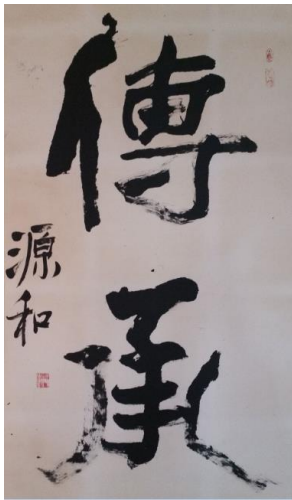 傳承
源和